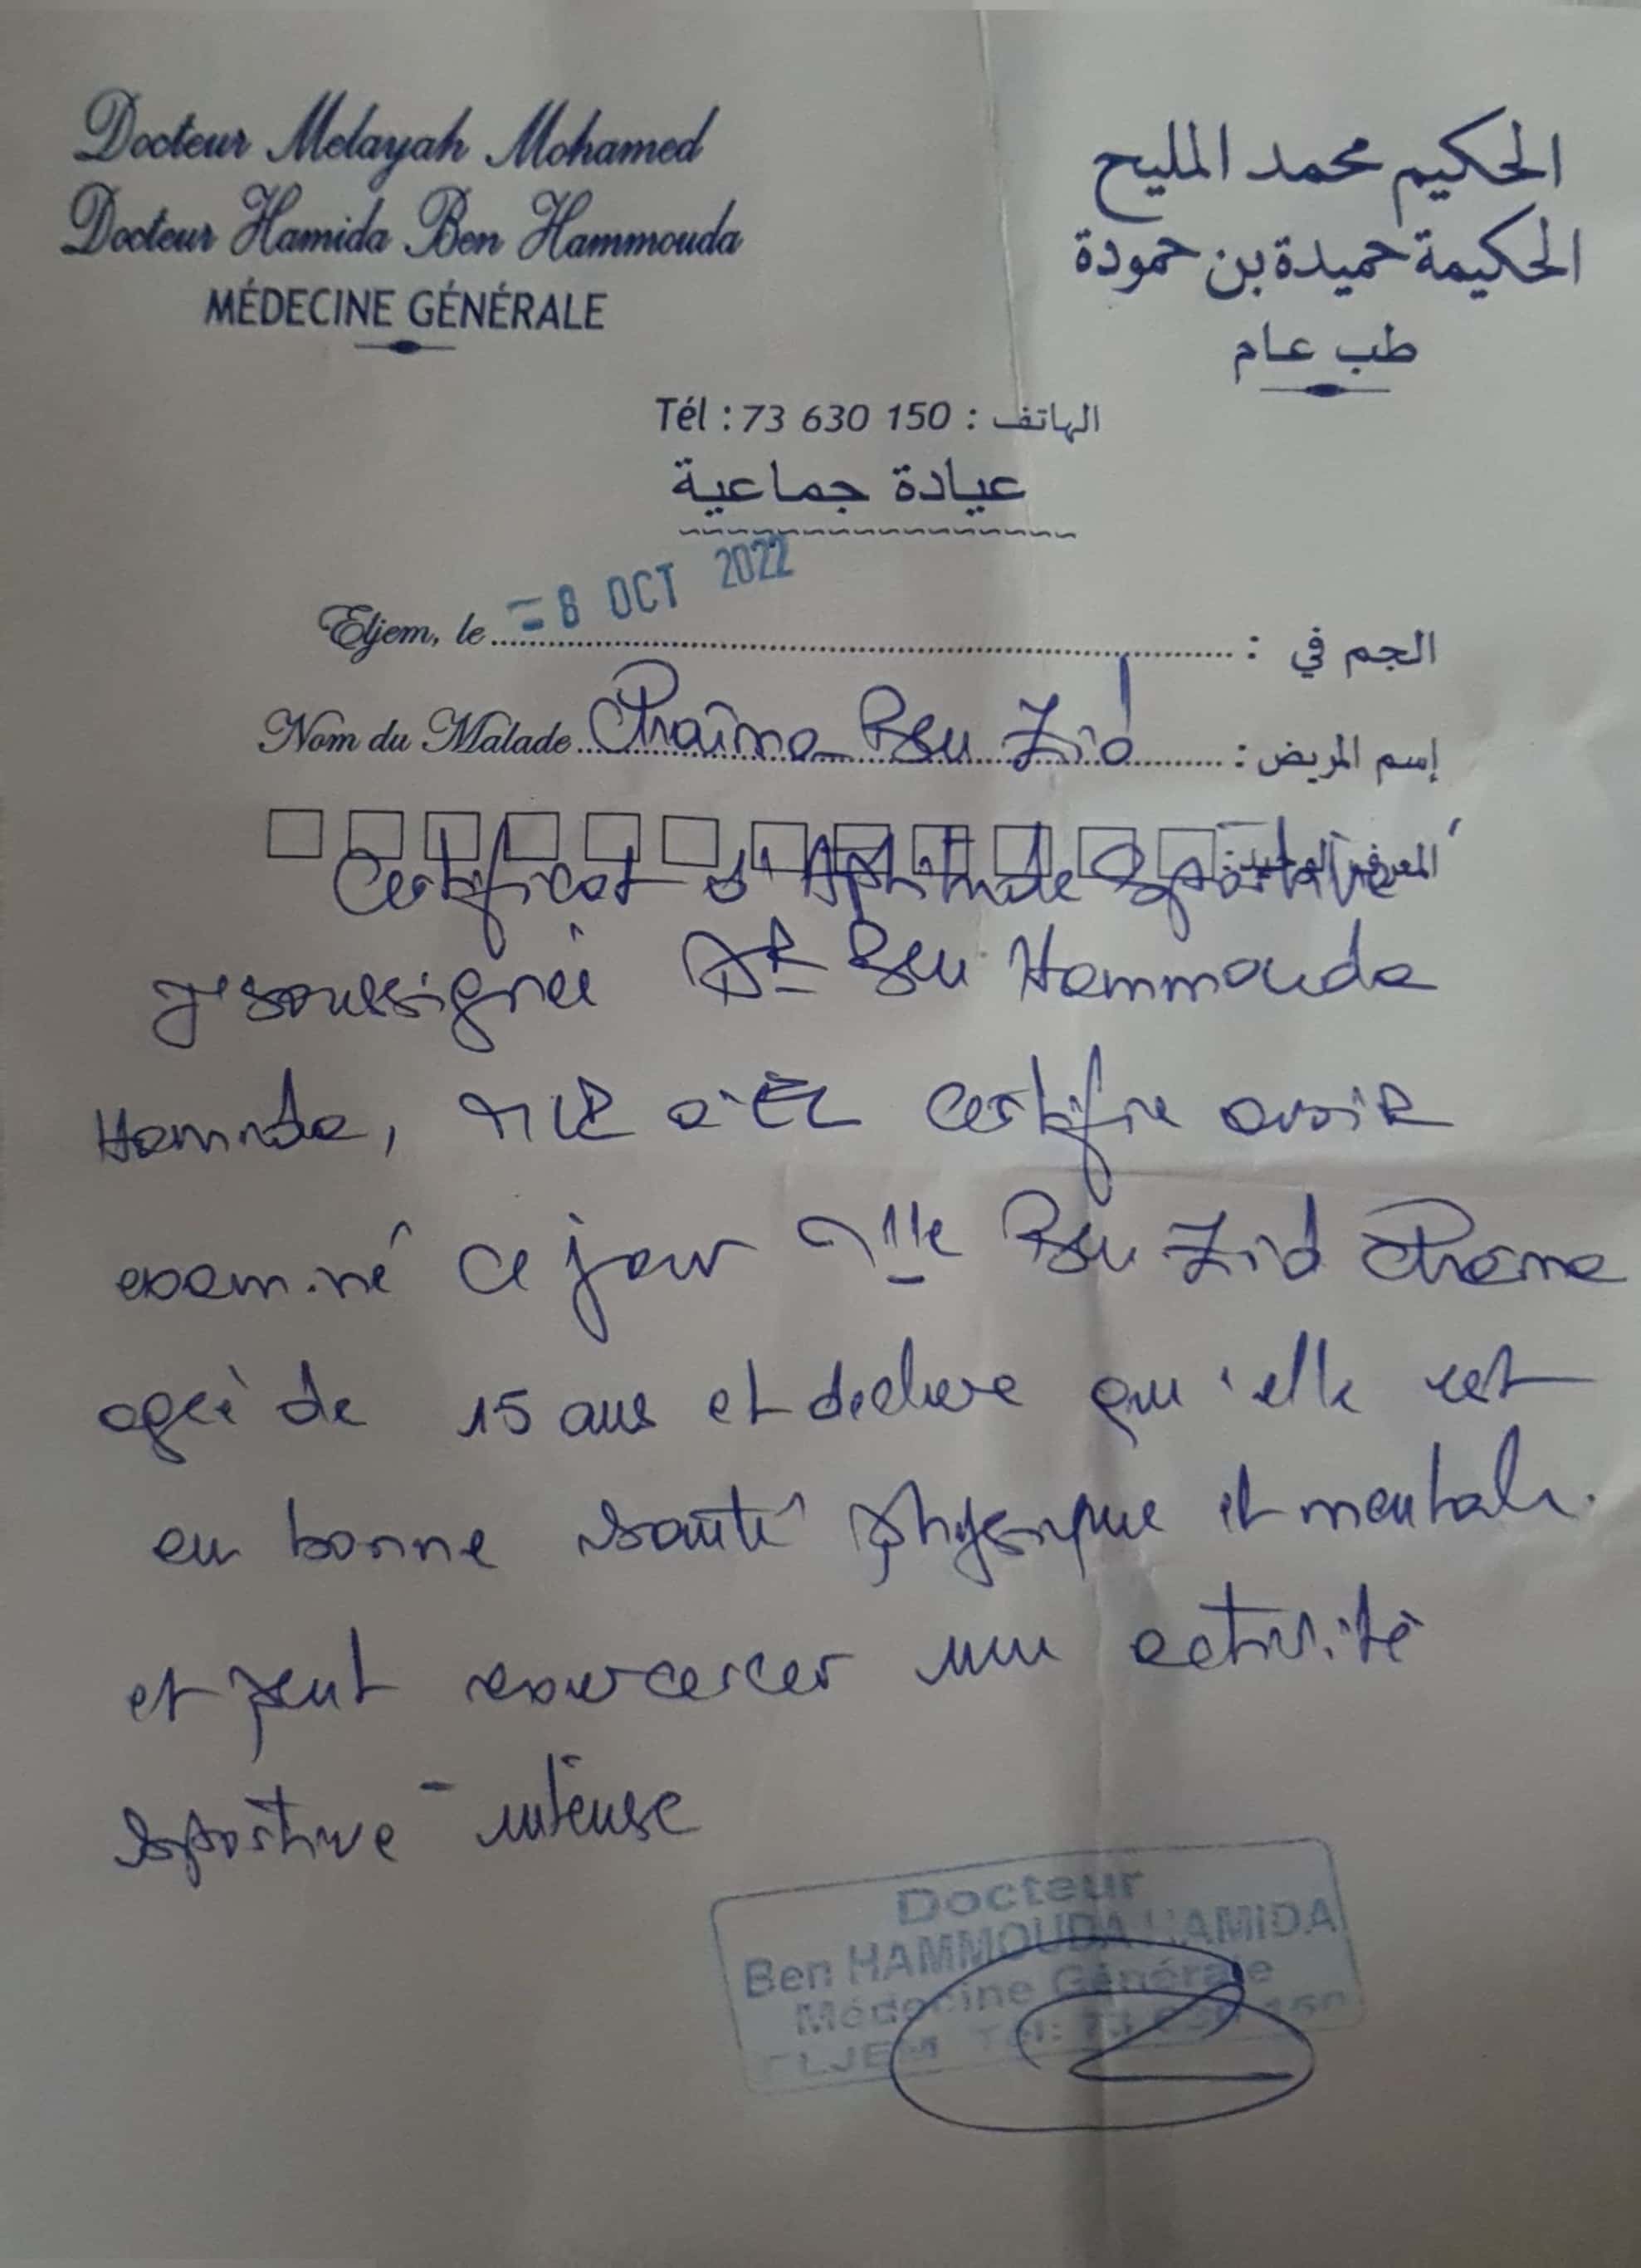 Docteur Melayah Mohamed
Docteur Hamida Ben Hammouda
MÉDECINE GÉNÉRALE
الحكيم محمد المليح
الحكيمة حميدة بن حمودة
طب عام
Tél : 73 630 150 : الهاتف
عيادة جماعية
Eljem, le = 8 OCT 2022 الجم في :
Nom du Malade Chaïma Ben Zid إسم المريض :
Certificat d'Aptitude Sportive
Je soussignée DR Ben Hammouda
Hamida, certifie avoir
examiné ce jour Mlle Ben Zid
agée de 15 ans et declare qu'elle est
en bonne santé physique et mentale.
et peut une activité
sportive intense
Docteur
Ben HAMMOUDA HAMIDA
Médecine Générale
ELJEM Tél: 73 630 150